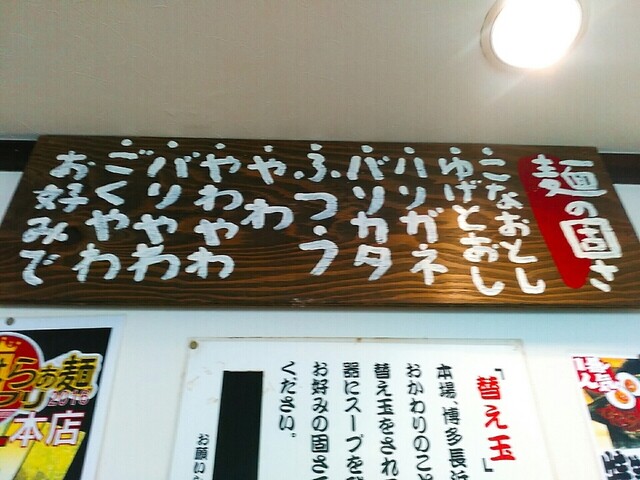 麺の固さ
・こなおとし
・ゆげとおし
・ハリガネ
・バリカタ
・ふつう
・やわ
・やわやわ
・バリやわ
・ごくやわ
お好みで
「替え玉」
本場、博多長浜
おかわりのこと
替え玉をされ
器にスープを
お好みの固さ
ください。
お願い
らぁ麺
2016
本店